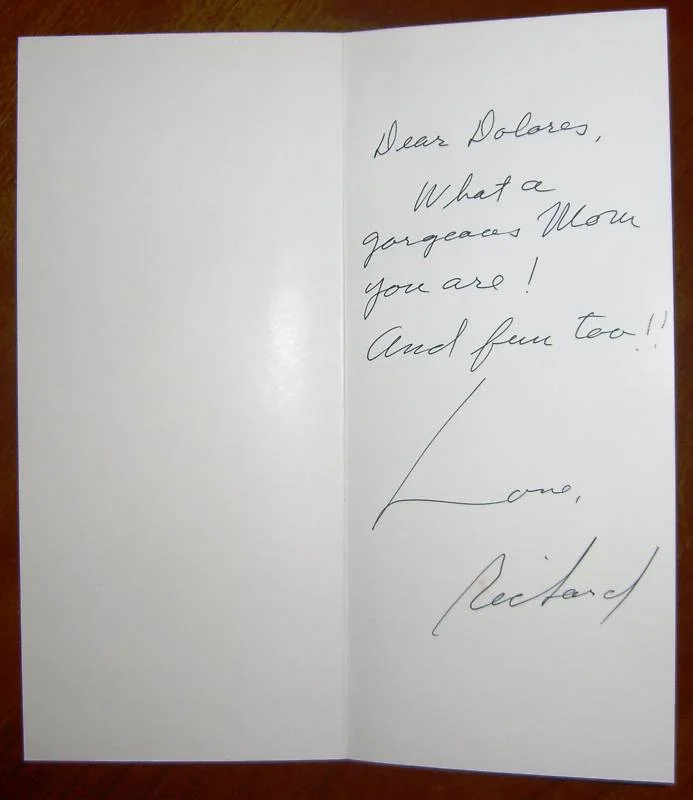 Dear Dolores,
What a
gorgeous Mom
you are!
And fun too!!
Love,
Richard